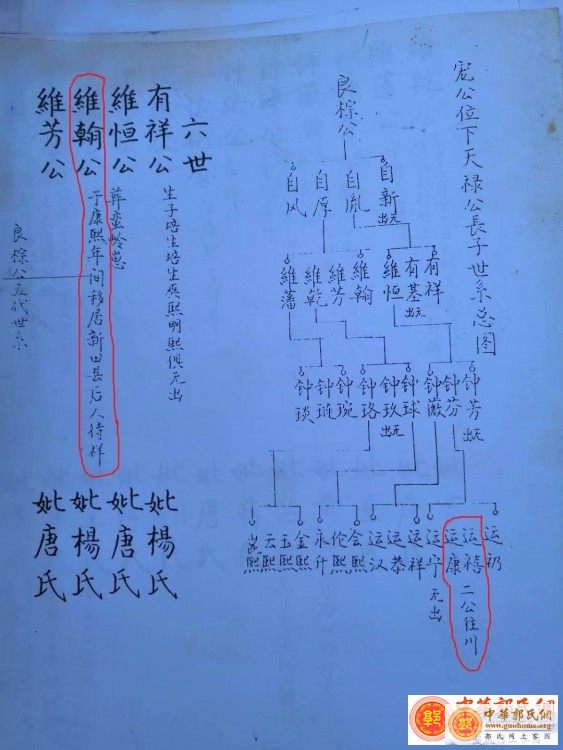 宽公位下天禄公長子世系总图
良棕公
自新出无
自胤
自厚
自风
有祥
有基出无
維恒
維翰
維芳
維乾
維藩
钟芳出无
钟芬
钟薇
钟球
钟玖出无
钟珞
钟琬
钟琏
钟琰
运礽
运禧
运康
二公往川
运宁无出
运祥
运恭
运汉
会熙
伦熙
永升
金熙
玉熙
云熙
崑熙
六世
有祥公
生子培生培生奭熙明熙俱无出
妣楊氏
維恒公
葬蛮岭忠
妣唐氏
維翰公
于康熙年间移居新田县后人待祥
妣楊氏
維芳公
妣唐氏
良棕公五代世系
中華郭氏網
www.guohome.org
郭氏网上家园